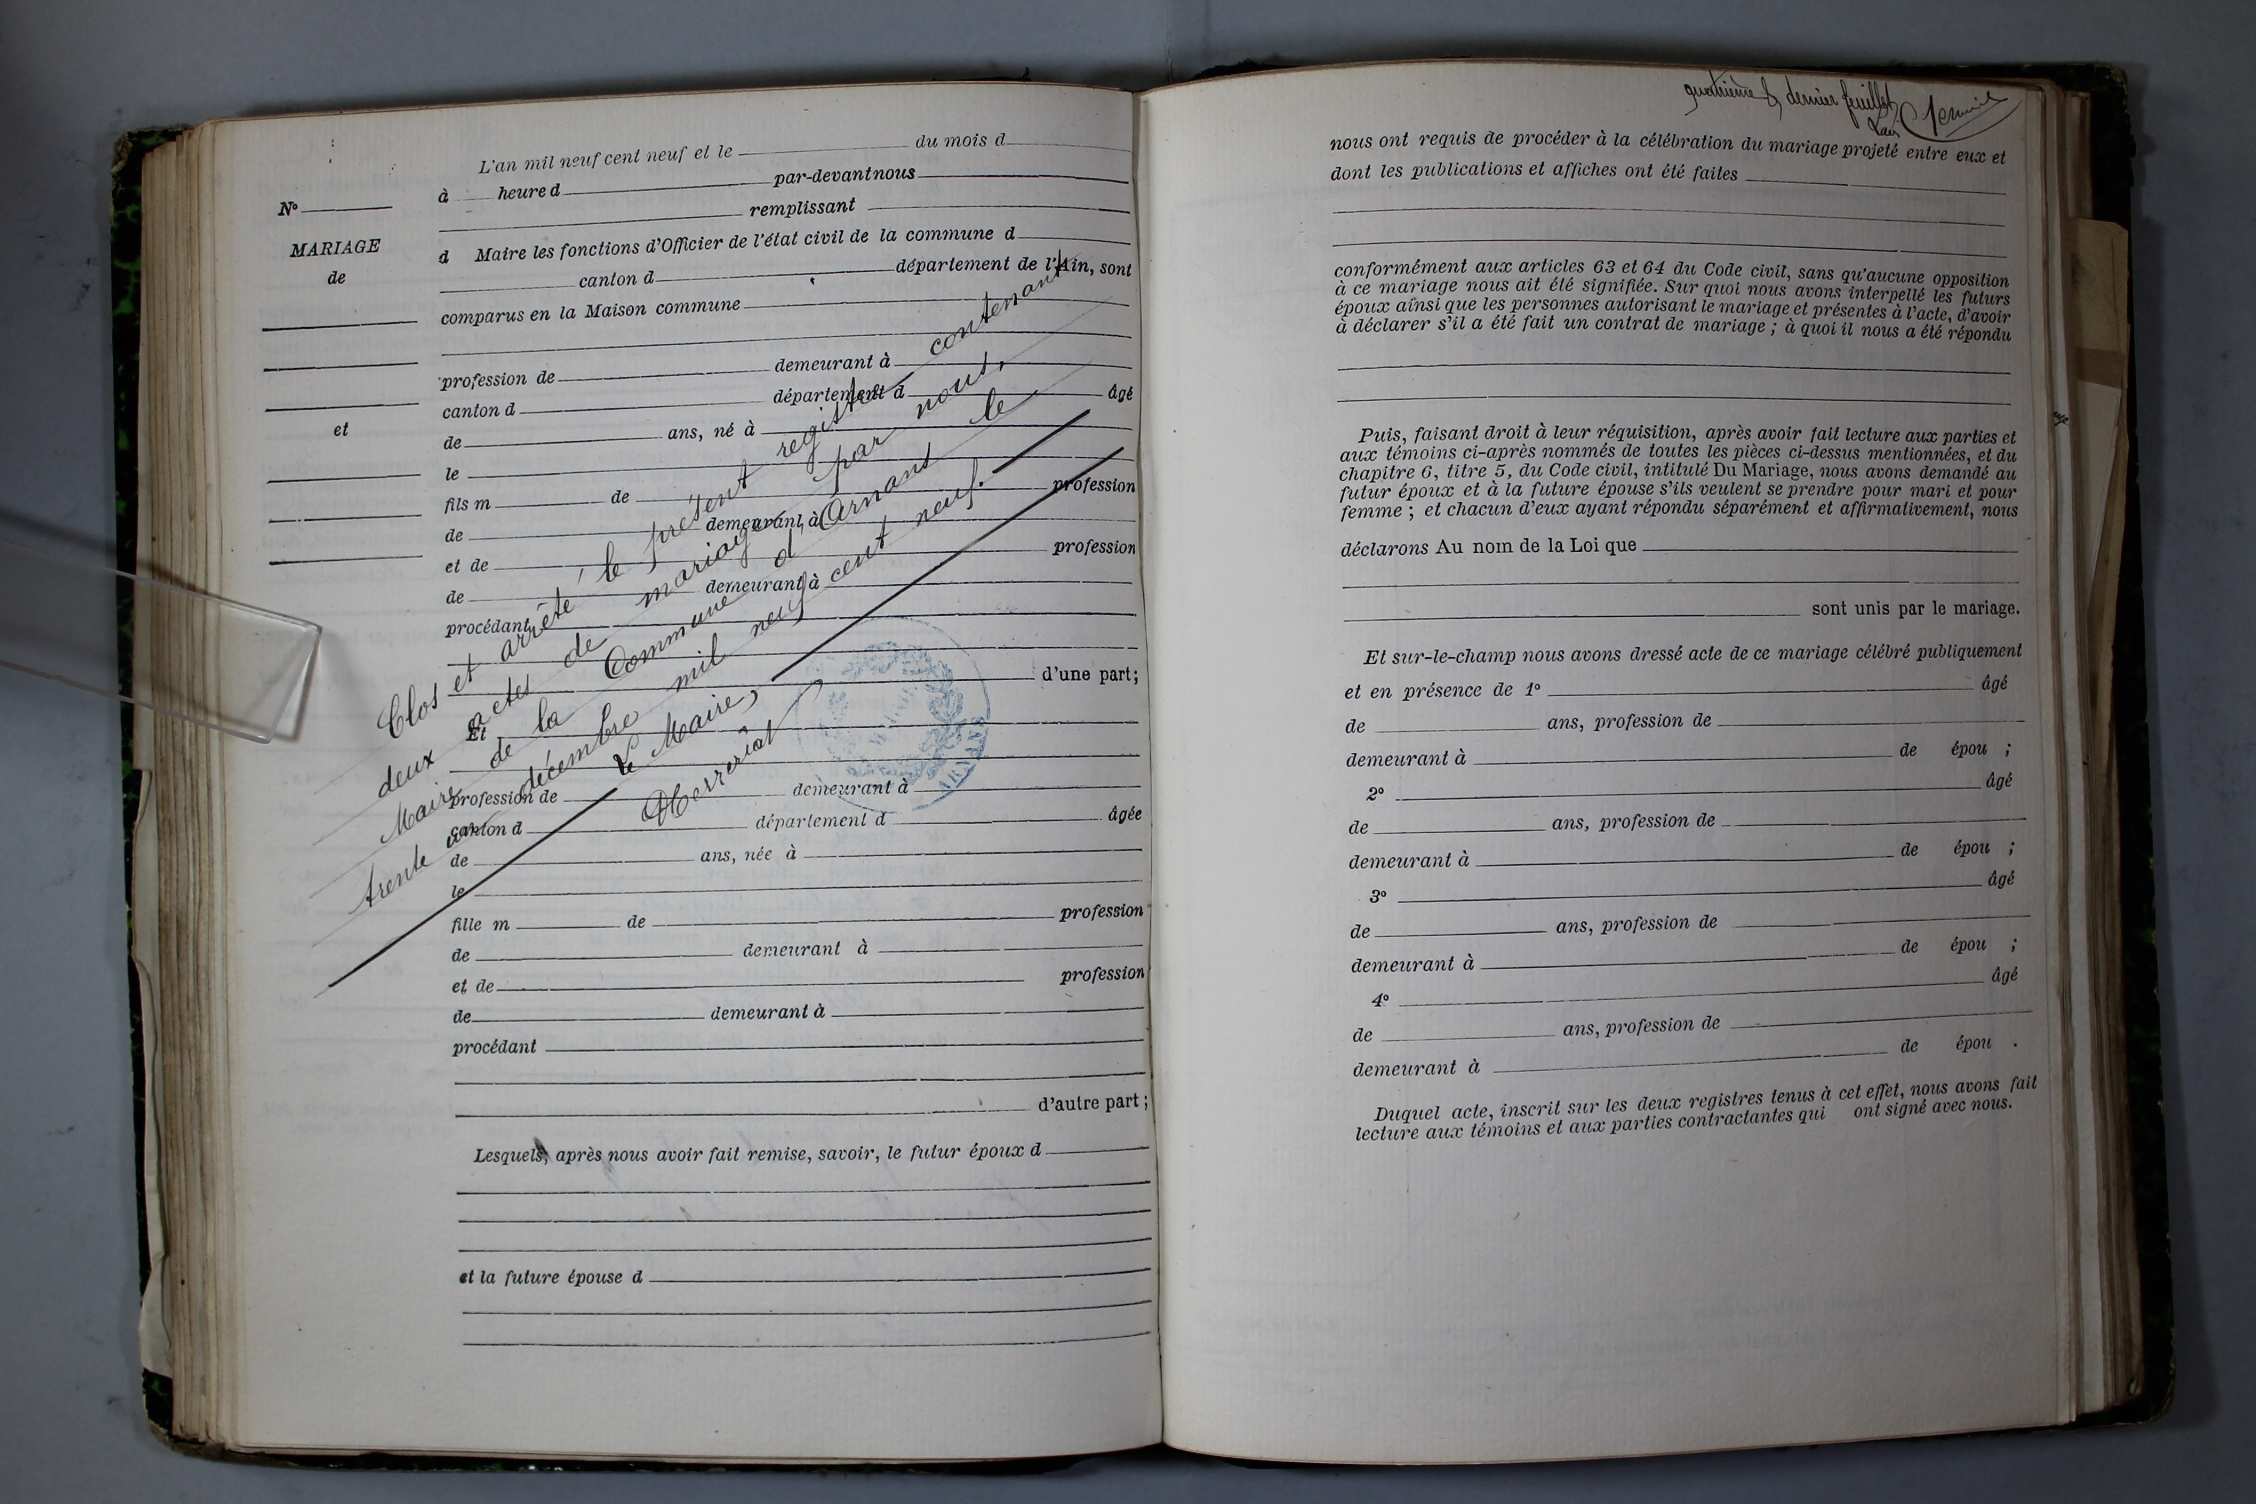 L'an mil neuf cent neuf et le du mois d
à heure d par-devant nous
N° remplissant
MARIAGE d Maire les fonctions d'Officier de l'état civil de la commune d
de canton d département de l'Ain, sont
comparus en la Maison commune
profession de demeurant à
canton d département d âgé
et de ans, né à
le
fils m de profession
de demeurant à
et de profession
de demeurant à
procédant
d'une part;
Et
profession de demeurant à
canton d département d âgée
de ans, née à
le
fille m de profession
de demeurant à
et de profession
de demeurant à
procédant
d'autre part;
Lesquels, après nous avoir fait remise, savoir, le futur époux d
et la future épouse d
Clos et arrêté, le présent registre contenant
deux actes de mariage, par nous,
Maire de la Commune d'Arnans le
trente un décembre mil neuf cent neuf.
Le Maire,
ARNANS
quatrième & dernier feuillet
nous ont requis de procéder à la célébration du mariage projeté entre eux et
dont les publications et affiches ont été faites
conformément aux articles 63 et 64 du Code civil, sans qu'aucune opposition
à ce mariage nous ait été signifiée. Sur quoi nous avons interpellé les futurs
époux ainsi que les personnes autorisant le mariage et présentes à l'acte, d'avoir
à déclarer s'il a été fait un contrat de mariage ; à quoi il nous a été répondu
Puis, faisant droit à leur réquisition, après avoir fait lecture aux parties et
aux témoins ci-après nommés de toutes les pièces ci-dessus mentionnées, et du
chapitre 6, titre 5, du Code civil, intitulé Du Mariage, nous avons demandé au
futur époux et à la future épouse s'ils veulent se prendre pour mari et pour
femme ; et chacun d'eux ayant répondu séparément et affirmativement, nous
déclarons Au nom de la Loi que
sont unis par le mariage.
Et sur-le-champ nous avons dressé acte de ce mariage célébré publiquement
et en présence de 1° âgé
de ans, profession de
demeurant à de épou ;
2° âgé
de ans, profession de
demeurant à de épou ;
3° âgé
de ans, profession de
demeurant à de épou ;
4° âgé
de ans, profession de
demeurant à de épou .
Duquel acte, inscrit sur les deux registres tenus à cet effet, nous avons fait
lecture aux témoins et aux parties contractantes qui ont signé avec nous.